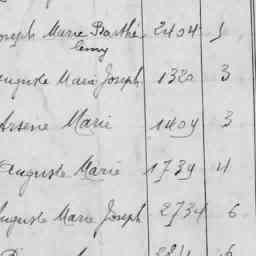 oseph Marie Barthé 2404 5
lemy
uguste Marie Joseph 1320 3
Arsene Marie 1409 3
Auguste Marie 1739 4
uguste Marie Joseph 2734 6